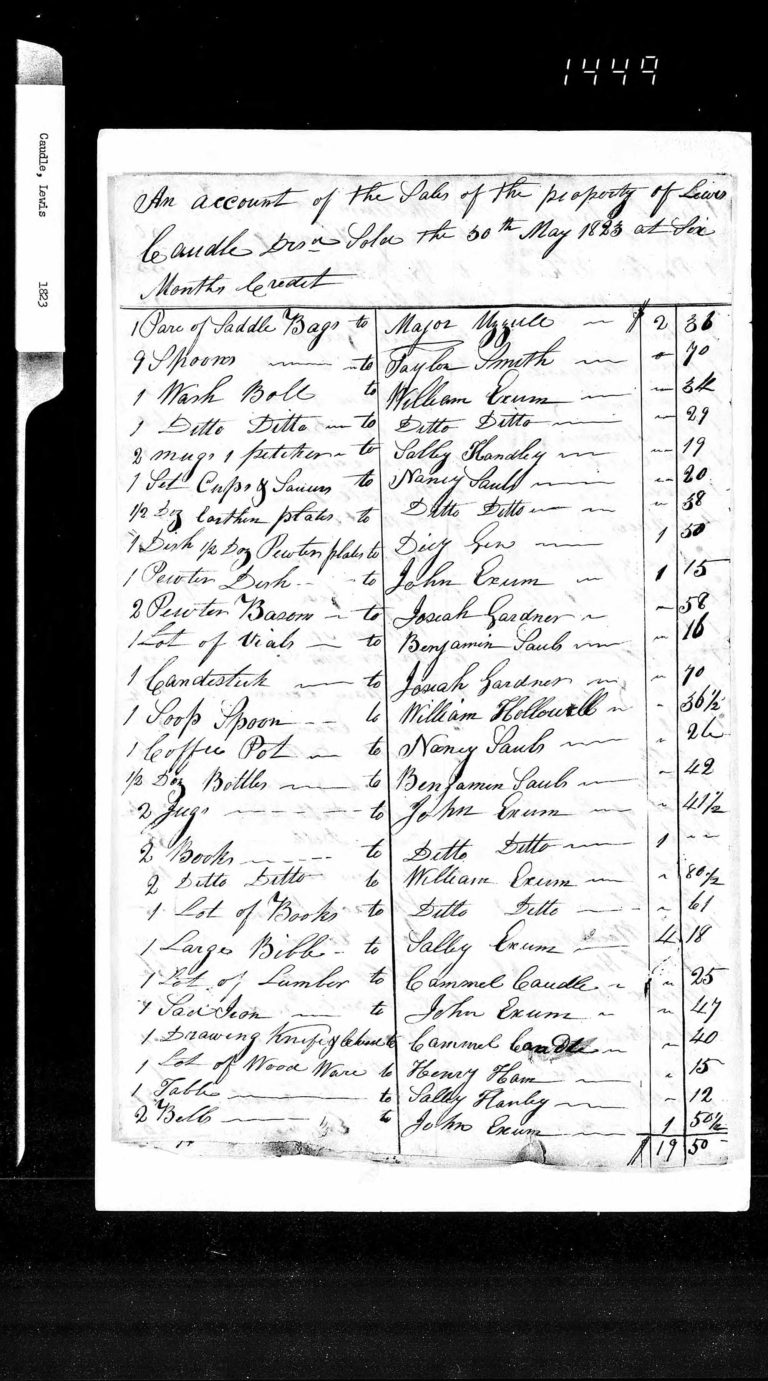 1449
Caudle, Lewis 1823
An account of the Sales of the property of Lewis
Caudle Desd Sold the 30th May 1823 at Six
Months Credit
1 Pare of Saddle Bags to Major Uzzell $ 2 36
9 Spoons to Taylor Smith 70
1 Wash Boll to William Exum 34
1 Ditto Ditto to Ditto Ditto 29
2 mugs 1 pitcher to Salley Handley 19
1 Set Cups & Saucers to Nancy Sauls 20
1/2 Doz Earthen plates to Ditto Ditto 38
1 Dish 1/2 Doz Pewter plates to 1 50
1 Pewter Dish to John Exum 1 15
2 Pewter Basons to Josiah Gardner 58
1 Lot of Vials to Benjamin Sauls 16
1 Candestick to Josiah Gardner 70
1 Soop Spoon to William Hollowell 36 1/2
1 Coffee Pot to Nancy Sauls
1/2 Doz Bottles to Benjamin Sauls 42
2 Jugs to John Exum 41 1/2
2 Books to Ditto Ditto 1 --
2 Ditto Ditto to William Exum 80 1/2
1 Lot of Books to Ditto Ditto 61
1 Large Bible to Salley Exum 4 18
1 Lot of Lumber to Cammel Caudle 25
1 Sad Iron to John Exum 47
1 Drawing Knife & to Cammel Caudle 40
1 Lot of Wood Ware to Henry Ham 15
1 Table to Salley Hanley 12
2 Bells to John Exum 1 50 1/2
$ 19 50